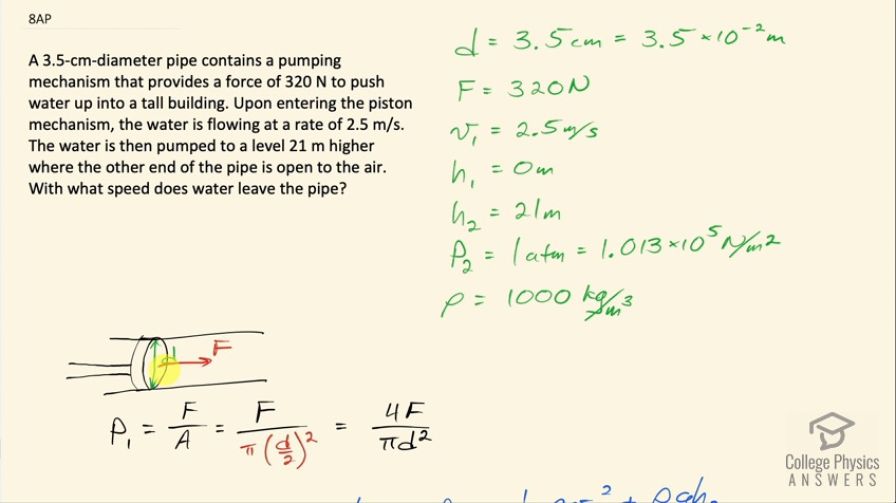 8AP
A 3.5-cm-diameter pipe contains a pumping
mechanism that provides a force of 320 N to push
water up into a tall building. Upon entering the piston
mechanism, the water is flowing at a rate of 2.5 m/s.
The water is then pumped to a level 21 m higher
where the other end of the pipe is open to the air.
With what speed does water leave the pipe?
d = 3.5 cm = 3.5 × 10⁻² m
F = 320 N
v₁ = 2.5 m/s
h₁ = 0 m
h₂ = 21 m
P₂ = 1 atm = 1.013 × 10⁵ N/m²
ρ = 1000 kg/m³
d F
P₁ = F/A = F/(π(d/2)²) = 4F/(πd²)
College Physics
ANSWERS